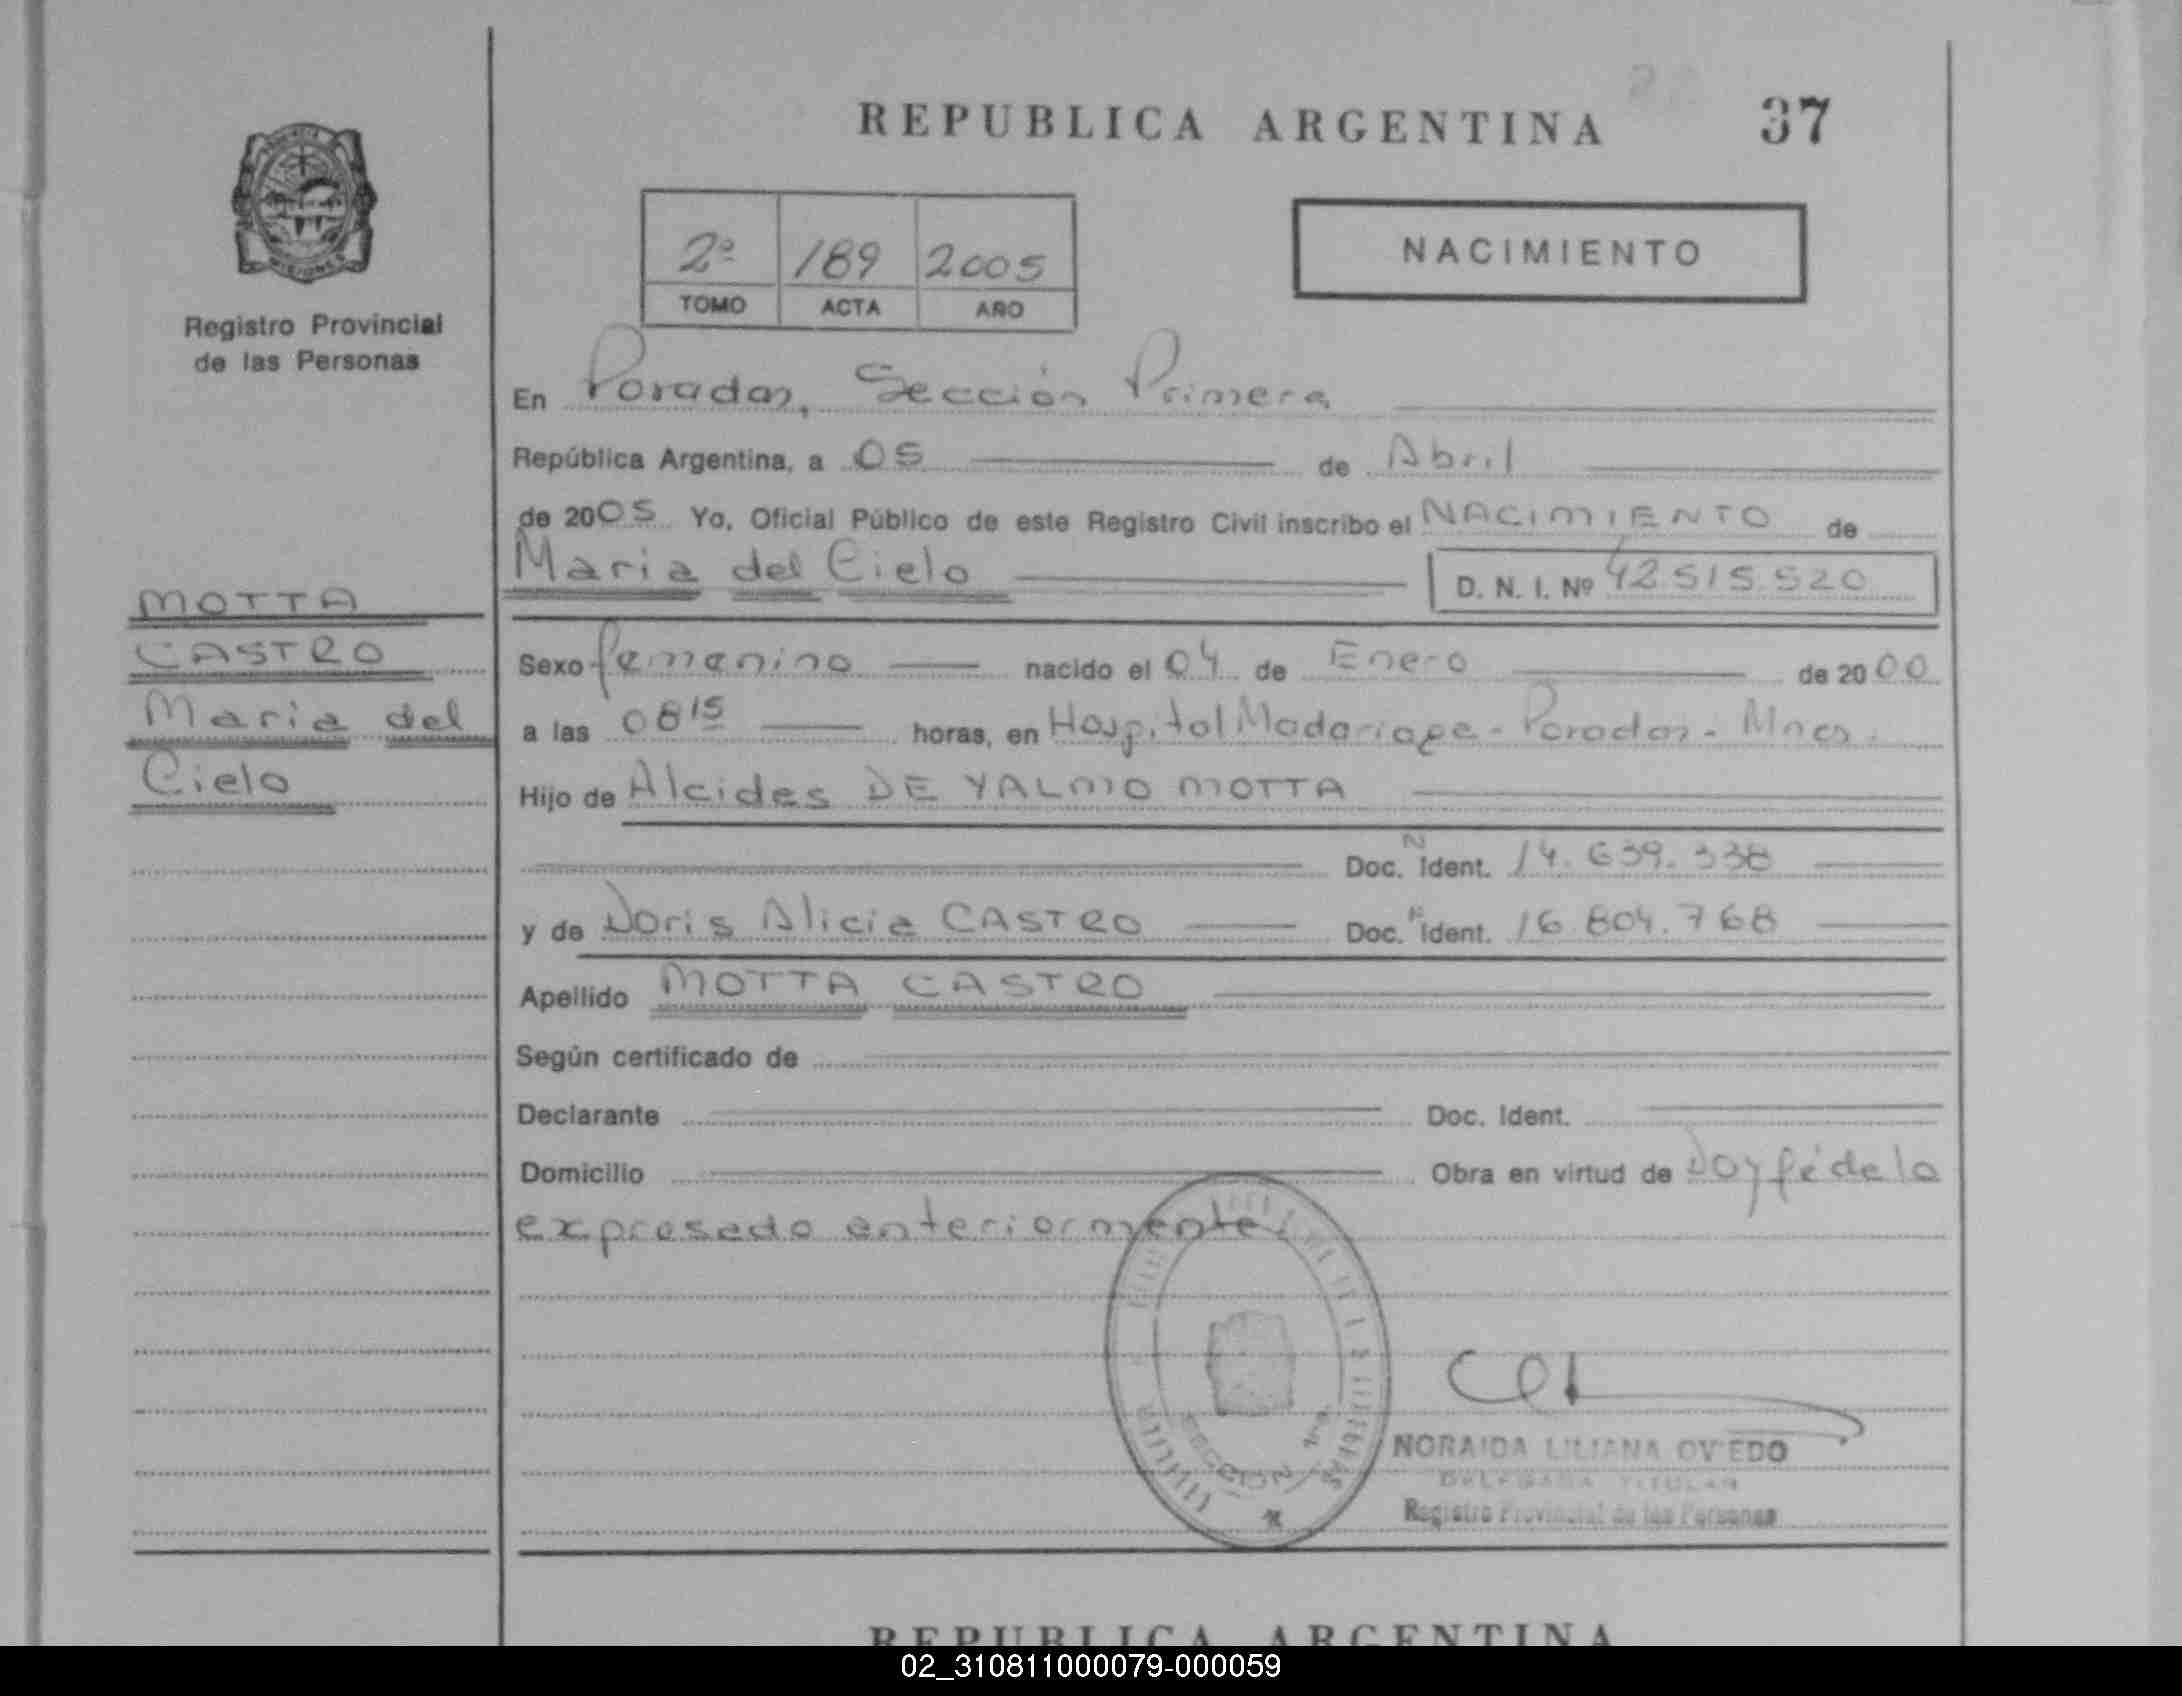 REPUBLICA ARGENTINA 37
2º 189 2005
TOMO ACTA AÑO
NACIMIENTO
MISIONES
Registro Provincial
de las Personas
En Posadas, Sección Primera
República Argentina, a 05 de Abril
de 2005 Yo, Oficial Público de este Registro Civil inscribo el NACIMIENTO de
Maria del Cielo D. N. I. Nº 42.515.520
MOTTA
CASTRO
Maria del
Cielo
Sexo femenino nacido el 04 de Enero de 2000
a las 08 15 horas, en Hospital Madariaga - Posadas - Mnes.
Hijo de Alcides DE YALMO MOTTA
Doc. N Ident. 14.639.338
y de Doris Alicia CASTRO Doc. N Ident. 16.804.768
Apellido MOTTA CASTRO
Según certificado de
Declarante Doc. Ident.
Domicilio Obra en virtud de Doy fé de lo
expresado anteriormente.
NORAIDA LILIANA OVIEDO
DELEGADA TITULAR
Registro Provincial de las Personas
REPUBLICA ARGENTINA
02_310811000079-000059